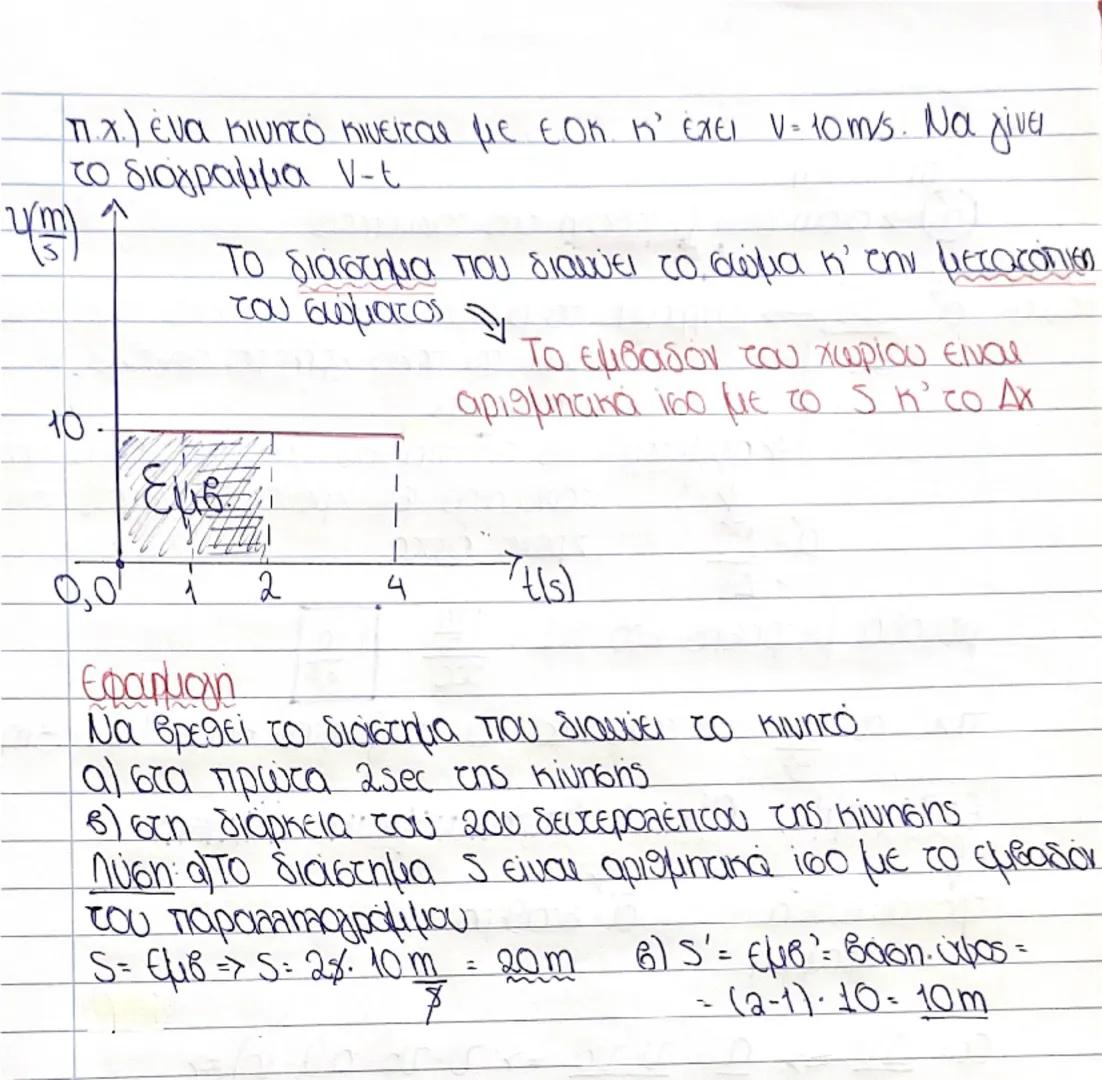 π.χ.) ένα κινητό κινείται με ΕΟΚ κ' έχει V=10m/s. Να γίνει
το διάγραμμα V-t
υ(m/s)
Το διάστημα που διανύει το σώμα κ' την μετατόπιση
του σώματος ⇘
Το εμβαδόν του χωρίου είναι
αριθμητικά ίσο με το S κ' το Δx
10
Εμβ.
0,0 1 2 4 t(s)
Εφαρμογή
Να βρεθεί το διάστημα που διανύει το κινητό
α) στα πρώτα 2sec της κίνησης
β) στη διάρκεια του 2ου δευτερολέπτου της κίνησης
Λύση: α) Το διάστημα S είναι αριθμητικά ίσο με το εμβαδόν
του παραλληλογράμμου
S= Εμβ => S= 2s. 10 m/s = 20m β) S'= Εμβ'= βάση. ύψος =
= (2-1). 10= 10m